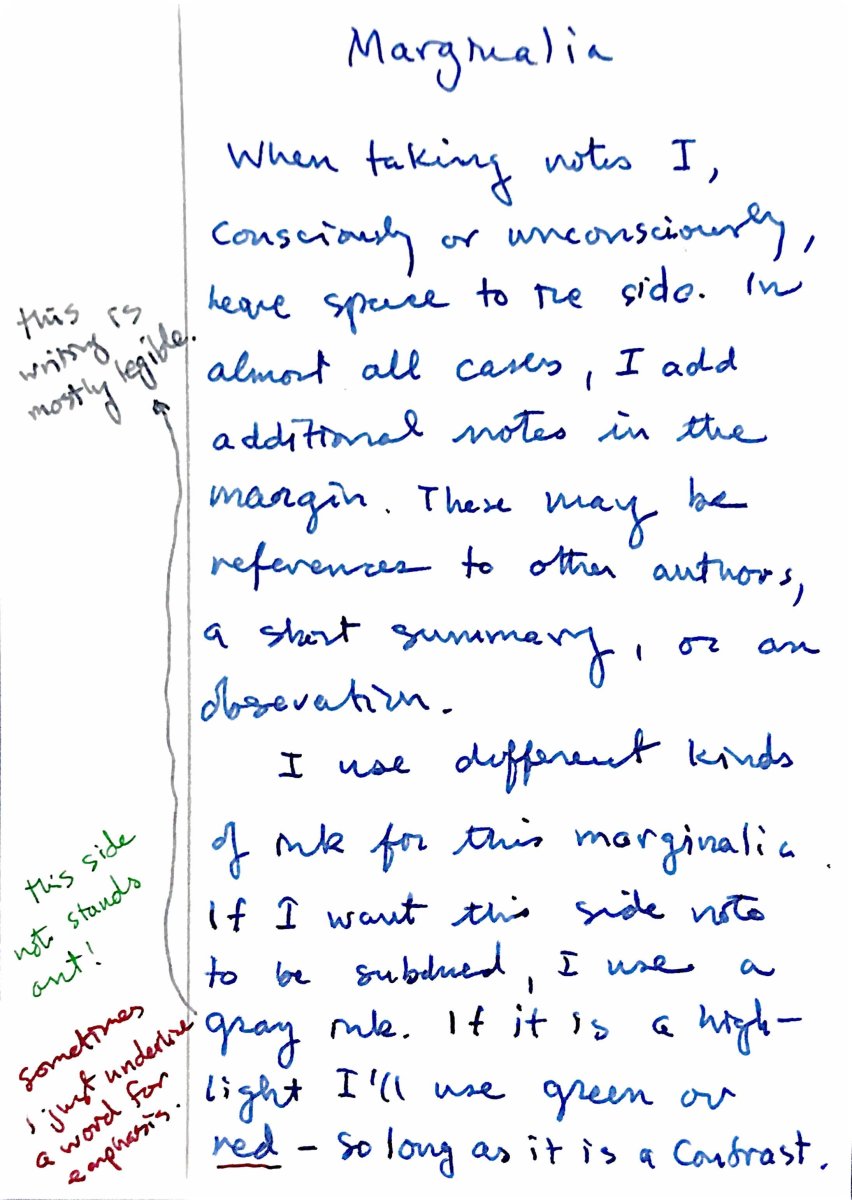 Marginalia
When taking notes I,
consciously or unconsciously,
leave space to the side. In
almost all cases, I add
additional notes in the
margin. These may be
references to other authors,
a short summary, or an
obsevation.
I use different kinds
of ink for this marginalia.
If I want this side note
to be subdued, I use a
gray ink. If it is a high-
light I'll use green or
red - so long as it is a contrast.
this is
writing is
mostly legible.
this side
note stands
out!
sometimes
I just underline
a word for
emphasis.